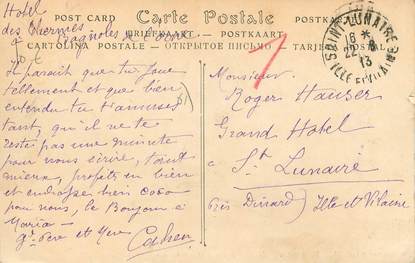 Hotel
des Thermes
à Bagnoles de l'Orne
POST CARD Carte Postale
BRIEFKAART POSTKAART
CARTOLINA POSTALE - ОТКРЫТОЕ ПИСЬМО - TARJETA POSTAL
SAINT-LUNAIRE
22 -8
13
ILLE-ET-VILAINE
Il parait que tu joue
tellement et que bien
entendu tu t'amuses
tant, qu'il ne te
reste pas une minute
pour nous écrire, tout
mieux, profites en bien
et embrasse bien coco
pour nous, le Bonjour à
Maria -
gd père et
Cahen
Monsieur
Roger Hauser
Grand Hotel
à St Lunaire
près Dinard) Ille et Vilaine